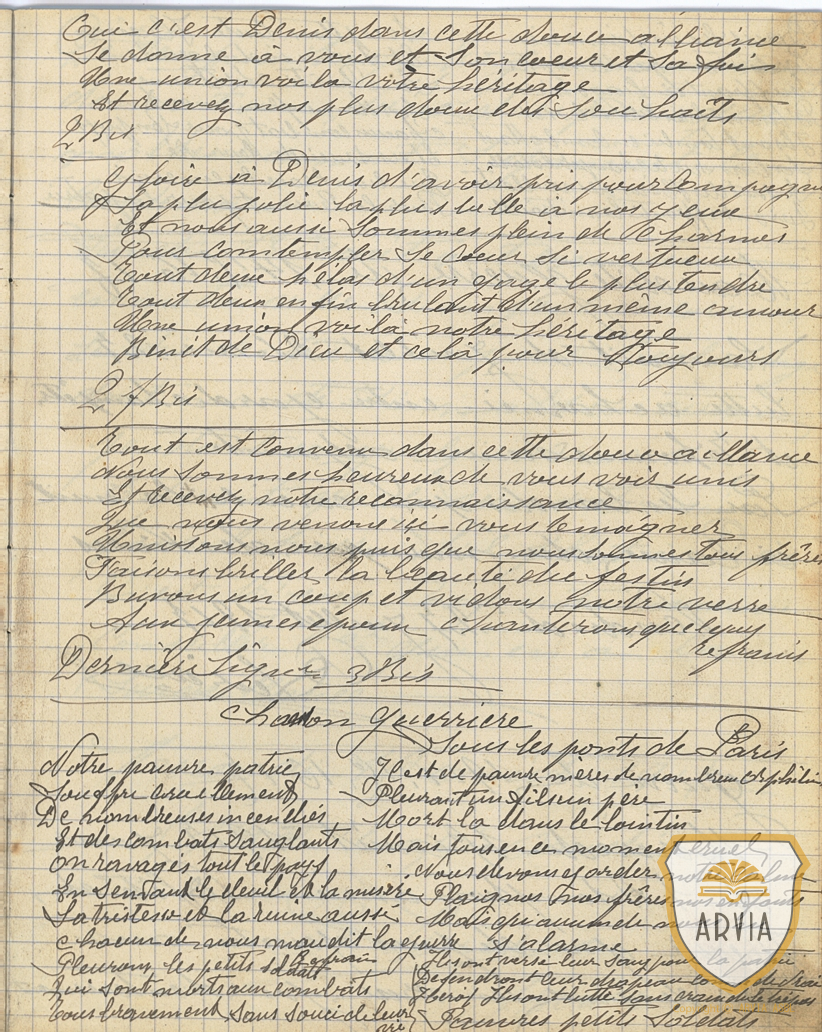 Oui c'est Denis dans cette douce alliance
Se donne à vous et Son coeur et Sa foi
Une union voila votre héritage
Et recevez nos plus doux des Souhaits
2 Bis
Gloire à Denis d'avoir pris pour Compagne
La plu jolie la plus belle à nos yeux
Et nous aussi Sommes plein de Charmes
Pour comtempler Se Coeur Si vertueux
Tout deux hélas d'un gage le plus tendre
Tout deux enfin brulant d'un même amour
Une union voilà notre héritage
Bénit de Dieu et celà pour Toujours
2 f Bis
Tout est convenu dans cette douce aillance
Nous Sommes heureux de vous voir unis
Et recevez notre reconnaissance
Que nous venons ici vous témoigner
Unissons nous puis que nous Sommes tous frères
Faisons briller la beauté du festin
Buvons un coup et vidons notre verre
Aux jeunes epoux chanterons quelques
refrains
Dernière Ligne 3 Bis
Chanson Guerrière
Sous les ponts de Paris
Notre pauvre patrie
Souffre cruellement
De nombreuses incendiés
Et des combats Sanglants
On ravagés tout le pays
En Semant le deuil et la misère
La tristesse et la ruine aussi
Chacun de nous maudit la guerre
Refrain
Pleurons les petits soldats
Qui sont morts aux combats
Tous bravement Sans Souci de leur
vie
Il est de pauvre mères de nombreux Orphelins
Pleurant un fils un père
Mort la dans le lointin
Mais tous en ce moment cruel
Nous devons garder
Plaignos nos frères nos enfants
Mais qui aucun de
S'alarme
Ils ont versé leur Sang pour la patrie
Defendront leur drapeau
Héros Ils ont lutté Sans crainte le trépas
Pauvres petits Soldats
ARVIA